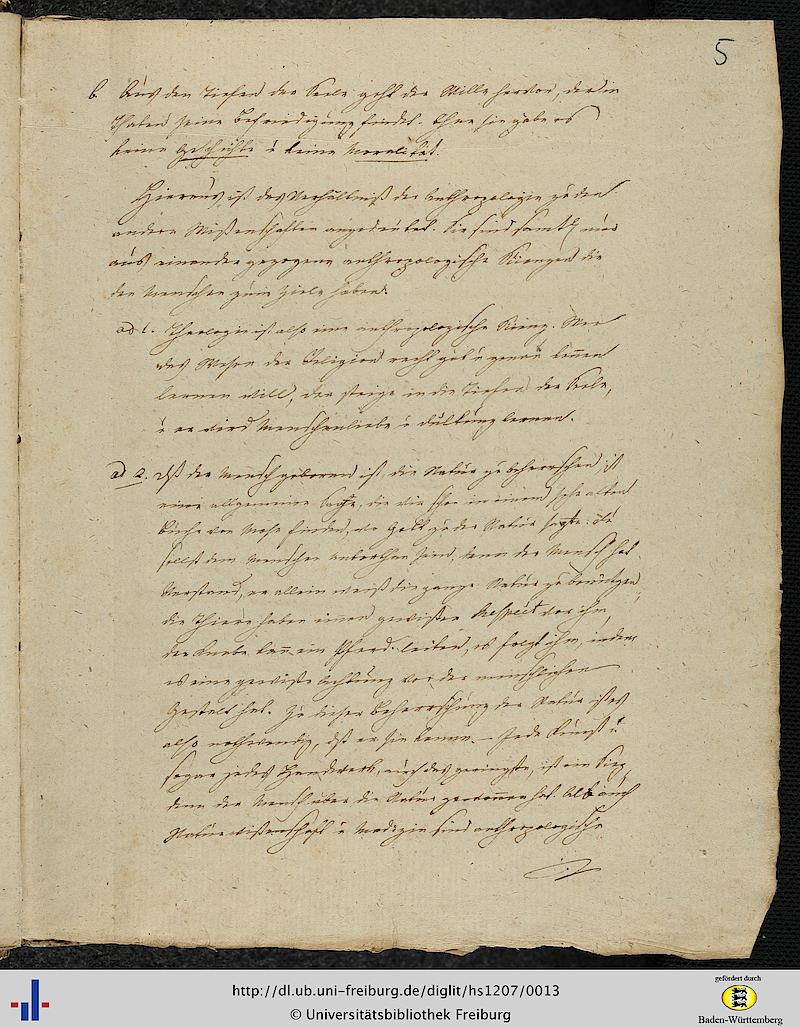 5
6 Aus den Tiefen der Seele geht der Wille hervor, der in
Thaten seine Befriedigung findet. Ohne sie gäbe es
keine Geschichte u keine Moralität.
Hieraus ist das Verhältniß der Anthropologie zu den
andern Wißenschaften angedeutet. Sie sind samtl nur
aus einander gezogene anthropologische die
den Menschen zum Ziele haben.
ad 1. Theologie ist also eine anthropologische Wer
das Wesen der Religion recht gut u genau kennen
lernen will, der steige in die Tiefen der Seele,
u er wird Menschenliebe u Duldung lernen.
ad 2. dß der Mensch geboren ist, die Natur zu beherrschen, ist
eine allgemeine Sage, die wir schon in einem sehr alten
Buche von Mose finden, wo Gott zu der Natur sagte: du
sollst dem Menschen unterthan sein, denn der Mensch hat
Verstand, er allein weiß die ganze Natur zu benutzen,
die Thiere haben einen gewißen Respect vor ihm,
der Knabe kann ein Pferd leiten, es folgt ihm, indem
es eine gewiße Achtung vor der menschlichen
Gestalt hat. Zu dieser Beherrschung der Natur ist es
also nothwendig, dß er sie kenne. – Jede Kunst u
sogar jedes Handwerk, auch das geringste, ist ein Sieg,
denn der Mensch über die Natur gewonnen hat. Also auch
Naturwißenschaft u Medizin sind anthropologische
http://dl.ub.uni-freiburg.de/diglit/hs1207/0013
© Universitätsbibliothek Freiburg
gefördert durch
Baden-Württemberg